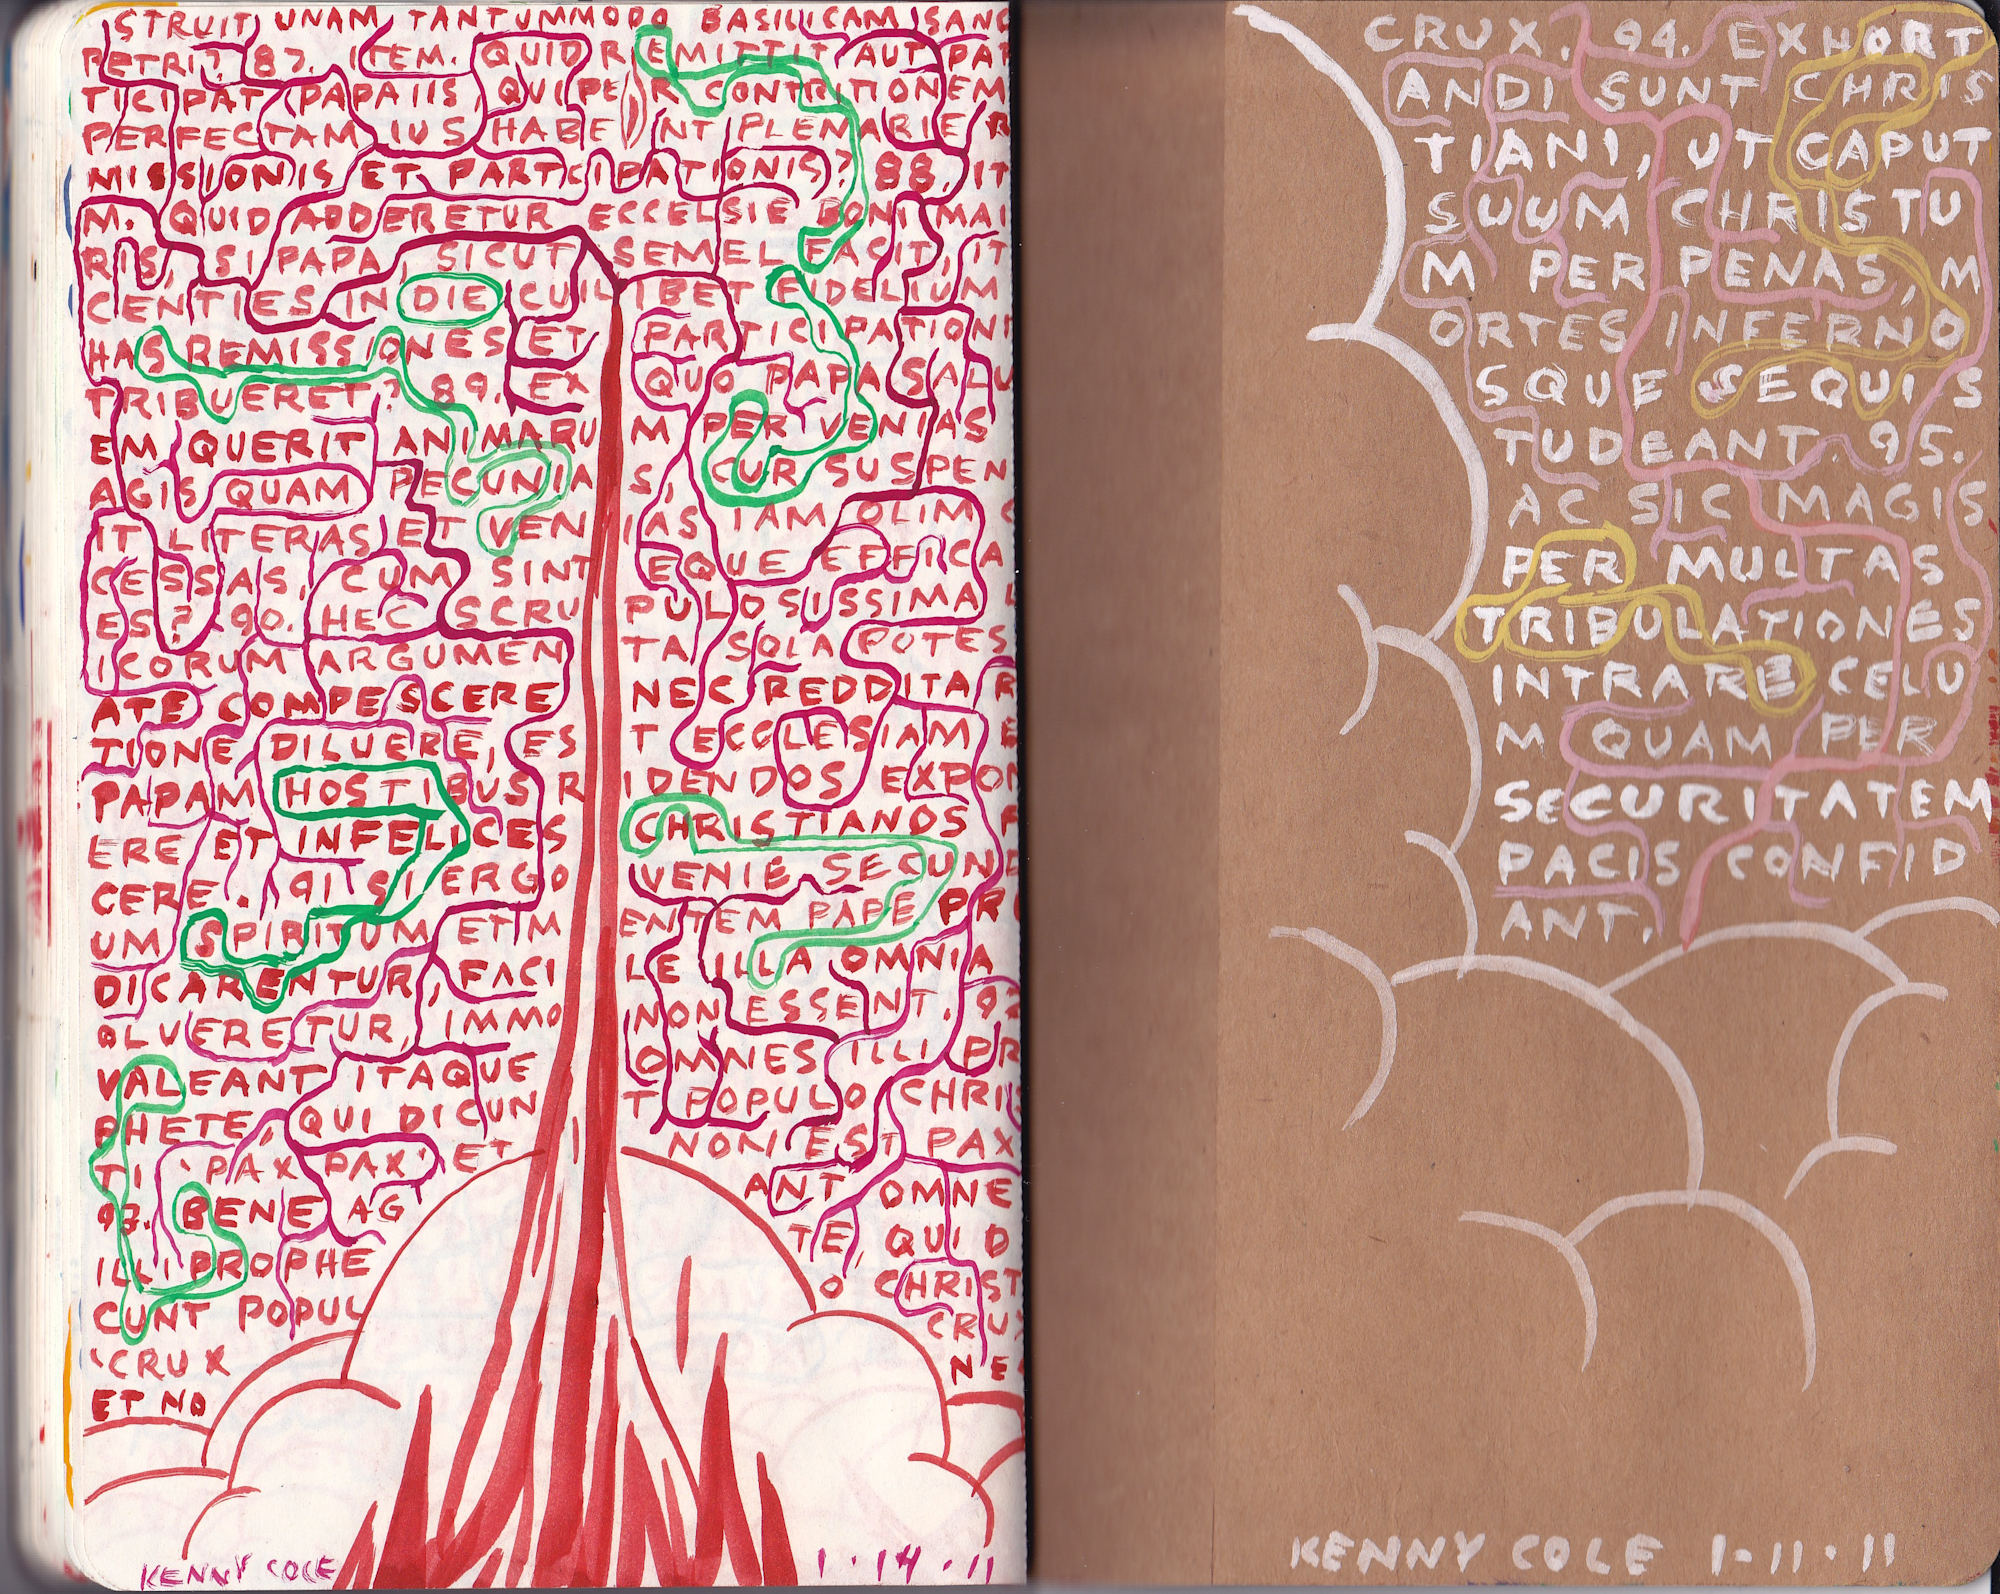 STRUIT UNAM TANTUMMODO BASILICAM SANC
PETRI? 87. ITEM. QUID REMITTIT AUT PAR
TICIPAT PAPA IIS, QUI PER CONTRITIONEM
PERFECTAM IUS HABENT PLENARIE R
MISSIONIS ET PARTICIPATIONIS? 88. IT
M. QUID ADDERETUR ECCELSIE BONI MAI
RIS, SI PAPA, SICUT SEMEL FACIT, IT
CENTIES IN DIE CUILIBET FIDELIUM
HAS REMISSIONES ET PARTICIPATIONI
TRIBUERET? 89. EX QUO PAPA SALU
EM QUERIT ANIMARUM PER VENIAS
AGIS QUAM PECUNIAS, CUR SUSPEN
IT LITERAS ET VENIAS IAM OLIM C
CESSAS, CUM SINT EQUE EFFICA
ES? 90. HEC SCRUPULOSISSIMA L
ICORUM ARGUMENTA SOLA POTES
ATE COMPESCERE NEC REDDITA R
TIONE DILUERE, EST ECCLESIAM E
PAPAM HOSTIBUS RIDENDOS EXPON
ERE ET INFELICES CHRISTIANOS F
CERE. 91 SI ERGO VENIE SECUND
UM SPIRITUM ET MENTEM PAPE PRE
DICARENTUR, FACILE ILLA OMNIA
OLVERETUR, IMMO NON ESSENT. 92
VALEANT ITAQUE OMNES ILLI PR
PHETE, QUI DICUNT POPULO CHRIS
TI 'PAX PAX' ET NON EST PAX
93. BENE AGANT OMNE
ILLI PROPHETE, QUI D
CUNT POPULO CHRIST
'CRUX CRUX
ET NO NE
KENNY COLE 1.14.11
CRUX. 94. EXHORT
ANDI SUNT CHRIS
TIANI, UT CAPUT
SUUM CHRISTU
M PER PENAS, M
ORTES INFERNO
SQUE SEQUI S
TUDEANT. 95.
AC SIC MAGIS
PER MULTAS
TRIBULATIONES
INTRARE CELU
M QUAM PER
SECURITATEM
PACIS CONFID
ANT.
KENNY COLE 1-11.11